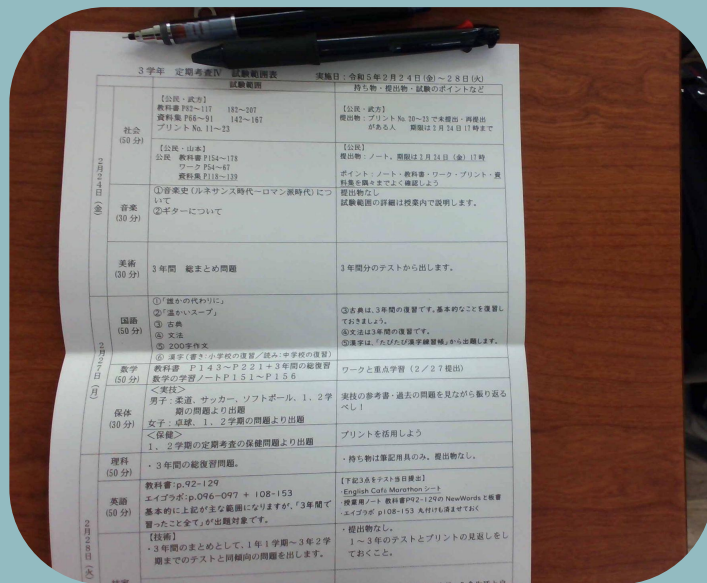 3学年 定期考査Ⅳ 試験範囲表 実施日：令和5年2月24日(金)～28日(火)
試験範囲 持ち物・提出物・試験のポイントなど
2月24日(金)
社会
(50分)
【公民・武方】
教科書 P82～117 182～207
資料集 P66～91 142～167
プリント No.11～23
【公民・武方】
提出物：プリント No.20～23で未提出・再提出
がある人 期限は2月24日17時まで
【公民・山本】
公民 教科書 P154～178
ワーク P54～67
資料集 P118～139
【公民】
提出物：ノート、期限は2月24日（金）17時
ポイント：ノート・教科書・ワーク・プリント・資
料集を隅々までよく確認しよう
音楽
(30分)
①音楽史(ルネサンス時代～ロマン派時代)につ
いて
②ギターについて
提出物なし
試験範囲の詳細は授業内で説明します。
美術
(30分)
3年間 総まとめ問題
3年間分のテストから出します。
2月27日(月)
国語
(50分)
①「誰かの代わりに」
②「温かいスープ」
③ 古典
④ 文法
⑤ 200字作文
⑥ 漢字(書き:小学校の復習／読み:中学校の復習)
③古典は、3年間の復習です。基本的なことを復習し
ておきましょう。
④文法は3年間の復習です。
⑤漢字は、「たびたび漢字練習帳」から出題します。
数学
(50分)
教科書 P143～P221＋3年間の総復習
数学の学習ノートP151～P156
ワークと重点学習（2／27提出）
保体
(30分)
＜実技＞
男子：柔道、サッカー、ソフトボール、1、2学
期の問題より出題
女子：卓球、1、2学期の問題より出題
実技の参考書・過去の問題を見ながら振り返る
べし！
＜保健＞
1、2学期の定期考査の保健問題より出題
プリントを活用しよう
2月28日(火)
理科
(50分)
・3年間の総復習問題。
・持ち物は筆記用具のみ、提出物なし。
英語
(50分)
教科書:p.92-129
エイゴラボ:p.096-097 + 108-153
基本的に上記が主な範囲になりますが、「3年間で
習ったこと全て」が出題対象です。
【下記3点をテスト当日提出】
・English Cafe Marathon シート
・授業用ノート 教科書P92-129のNewWordsと板書
・エイゴラボ p108-153 丸付けも済ませておく
【技術】
・3年間のまとめとして、1年1学期～3年2学
期までのテストと同傾向の問題を出します。
・提出物なし。
1～3年のテストとプリントの見返しをし
ておくこと。